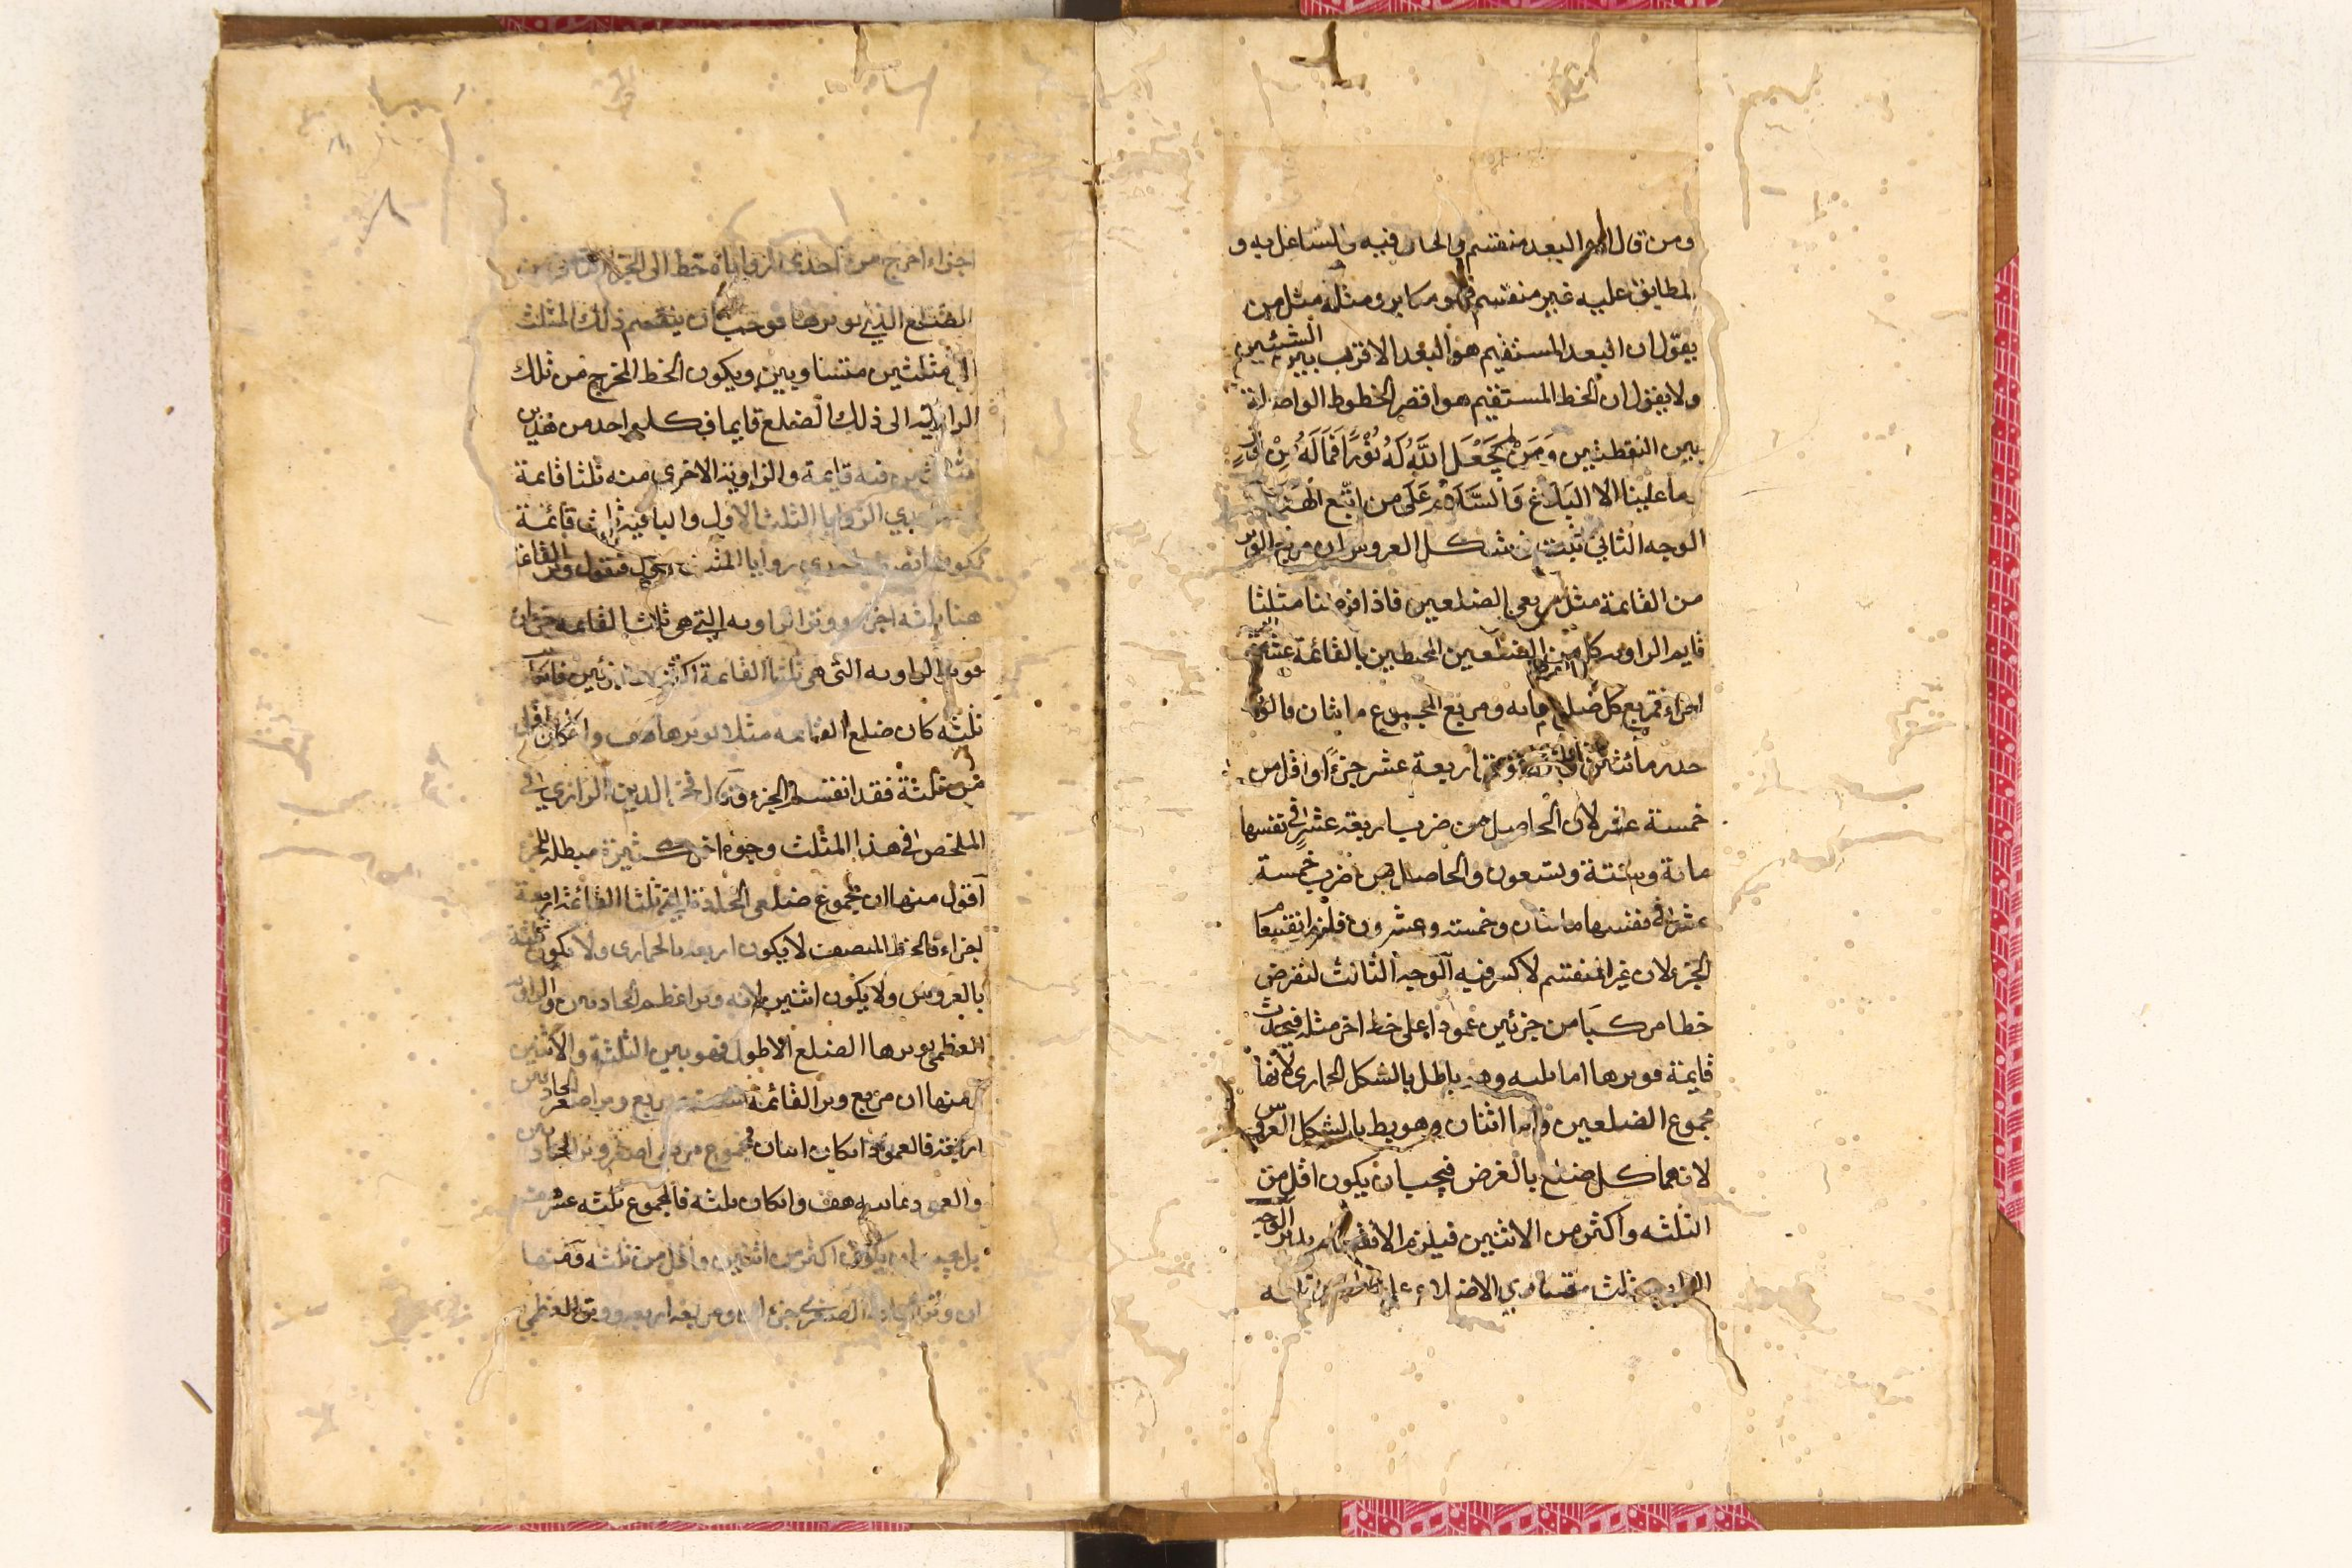 ومن قال البعد منقسم والحال فيه والشاغل به و
المطابق عليه غير منقسم فهو مكابر ومثله مثل من
يقول ان البعد المستقيم هو البعد الاقرب بين الشيئين
ولا يقول ان الخط المستقيم هو اقصر الخطوط الواصلة
بين النقطتين وَمَن لم يَجْعَلِ اللَّهُ لَهُ نُورًا فَمَا لَهُ مِنْ نور
ما علينا الا البَلاغ وَالسَّلام عَلَى من اتبع الهدى
الوجه الثاني ثبت في شكل العروس ان مربع الوتر
من القائمة مثل مربعي الضلعين فاذا فرضنا مثلثا
قايم الزاويه كل من الضلعين المحيطين بالقائمة عشرة
اجزاء فمربع كل ضلع مايه ومربع المجموع مائتان فالوتر
جذر مائتين اربعة عشر جزءًا واقل من
خمسة عشر لان الحاصل من ضرب اربعة عشر في نفسها
مائة وستة وتسعون والحاصل من ضرب خمسة
عشر في نفسها مائتان وخمسة وعشرون فلزم انقسام
الجزء لان غير المنقسم لا كسر فيه الوجه الثالث لنفرض
خطا مركبا من جزئين عمودا على خط اخر مثله فيحدث
قايمة فوترها اما ثلثه وهو باطل بالشكل الحماري لانها
مجموع الضلعين واما اثنان وهو بط بالشكل العروس
لانهما كل ضلع بالغرض فيجب ان يكون اقل من
الثلثه واكثر من الاثنين فيلزم الانقسام الوجه
الرابع مثلث متساوي الاضلاع على ثلثه
اجزاء اخرج من احدى الزوايا خط الى
الضلع الذي يوترها فوجب ان ينقسم ذلك المثلث
الى مثلثين متساويين ويكون الخط المخرج من تلك
الزاوية الى ذلك الضلع قايما في كل واحد من هذين
منه قايمة والزاوية الاخرى منه ثلثا قائمة
الزوايا المثلث الاول والباقية ثلث قائمة
زوايا المثلث فنقول وتر القائمة
هنا ثلثه اجزاء ووتر الزاويه التي هي ثلث القائمه جزء
فوتر الزاويه التي هي ثلثا القائمة اكثر من جزئين فان كان
ثلثه كان ضلع القائمه مثلا لوترها هف وان كان اقل
من ثلثة فقد انقسم الجزء وقال فخر الدين الرازي في
الملخص في هذا المثلث وجوه اخر كثيرة مبطلة للجزء
اقول منها ان مجموع ضلعي الحادة ثلثا القائمة اربعة
اجزاء فالخط المنصف لا يكون اربعه بالحماري ولا يكون ثلثة
بالعروس ولا يكون اثنين لانه وتر اعظم الحادتين والزاوية
العظمى يوترها الضلع الاطول فهو بين الثلثة والاثنين
منها ان مربع وتر القائمة تسعة ومربع وتر اصغر الحادتين
فالعمود ان كان اثنان فمجموع مربعي اصغر وتر الحادتين
والعمود ثمانيه هف وان كان ثلثه فالمجموع ثلثه عشر
بل يجب ان يكون اكثر من اثنين واقل من ثلثه ومنها
ان وتر الصغرى جزء ومربعه اربعه ووتر العظمى